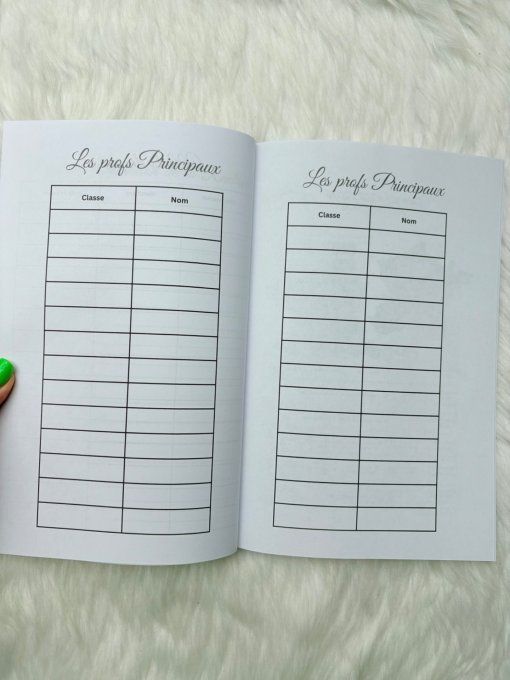 Les profs Principaux
Classe Nom
Les profs Principaux
Classe Nom